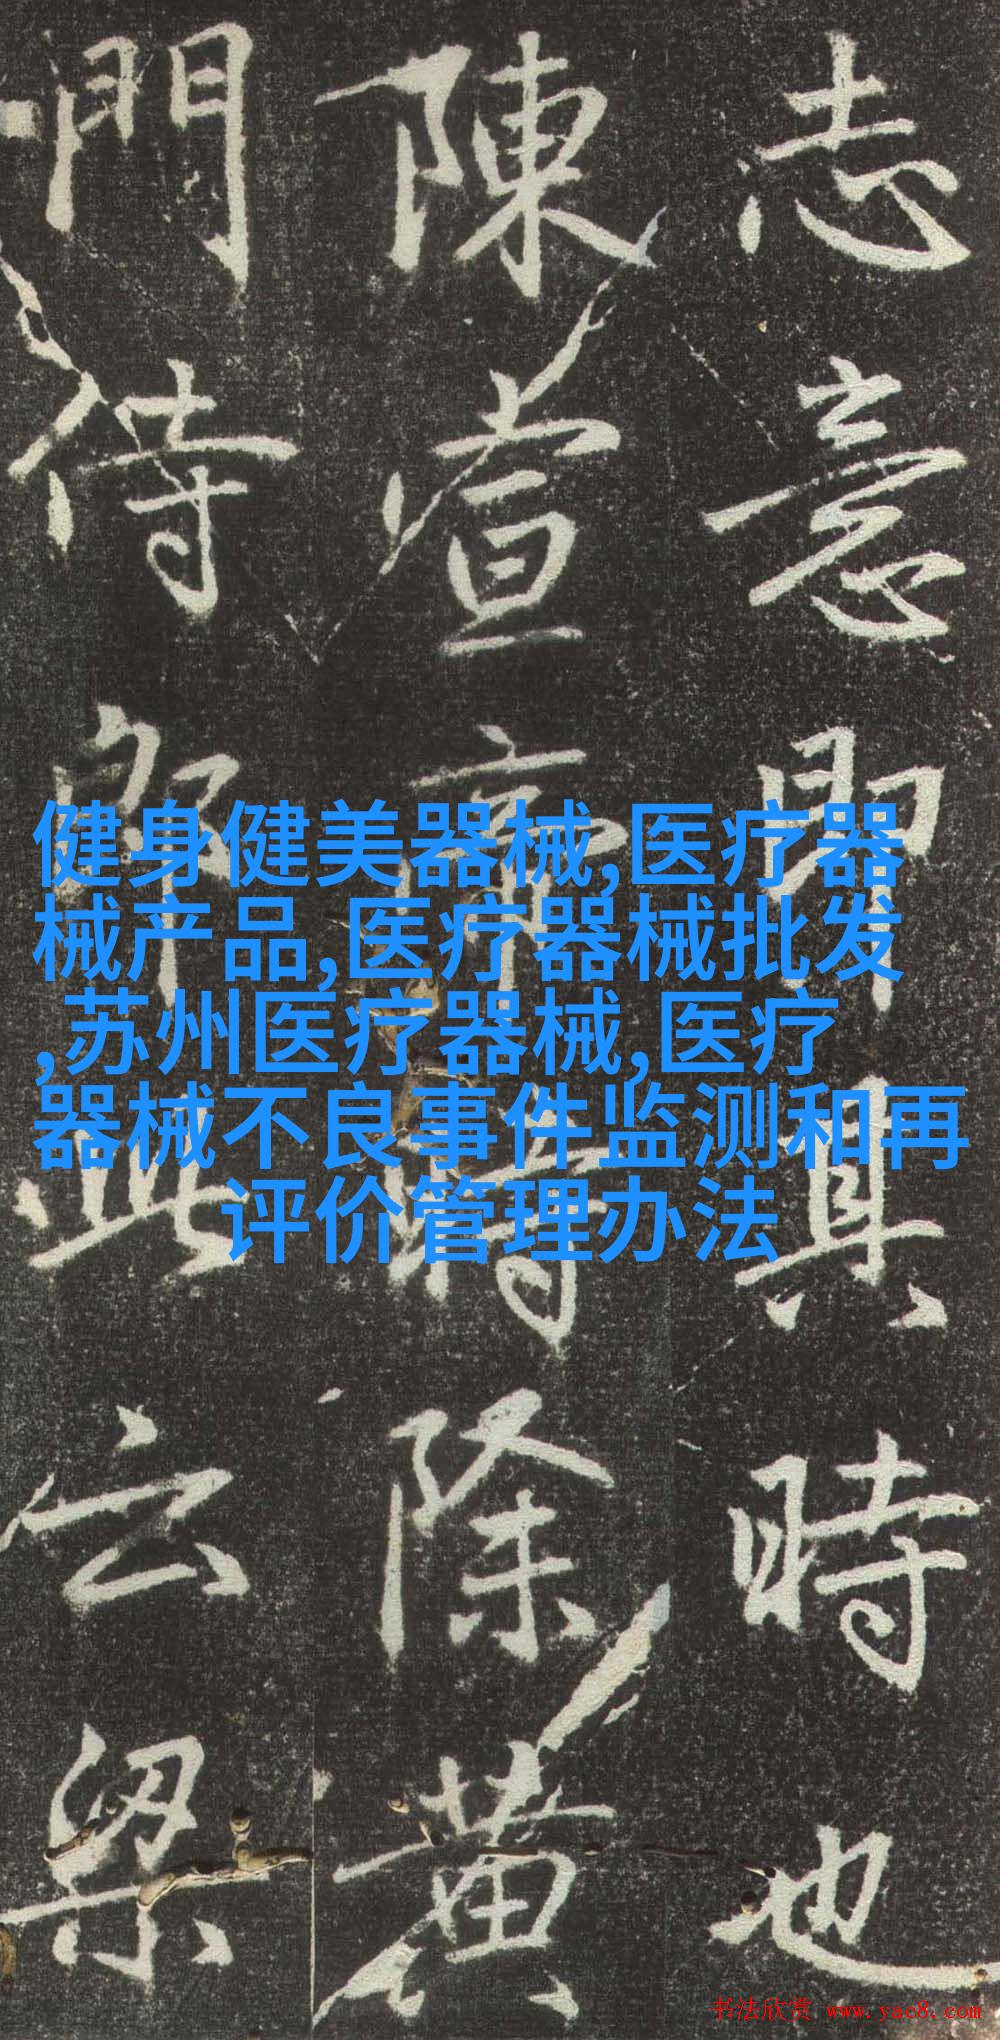 健身健美器械,医疗器
械产品,医疗器械批发
,苏州医疗器械,医疗
器械不良事件监测和再
评价管理办法
志意即其時也
陳宣帝時除黄
門侍郎此云梁
书法欣赏 www.yac8.com